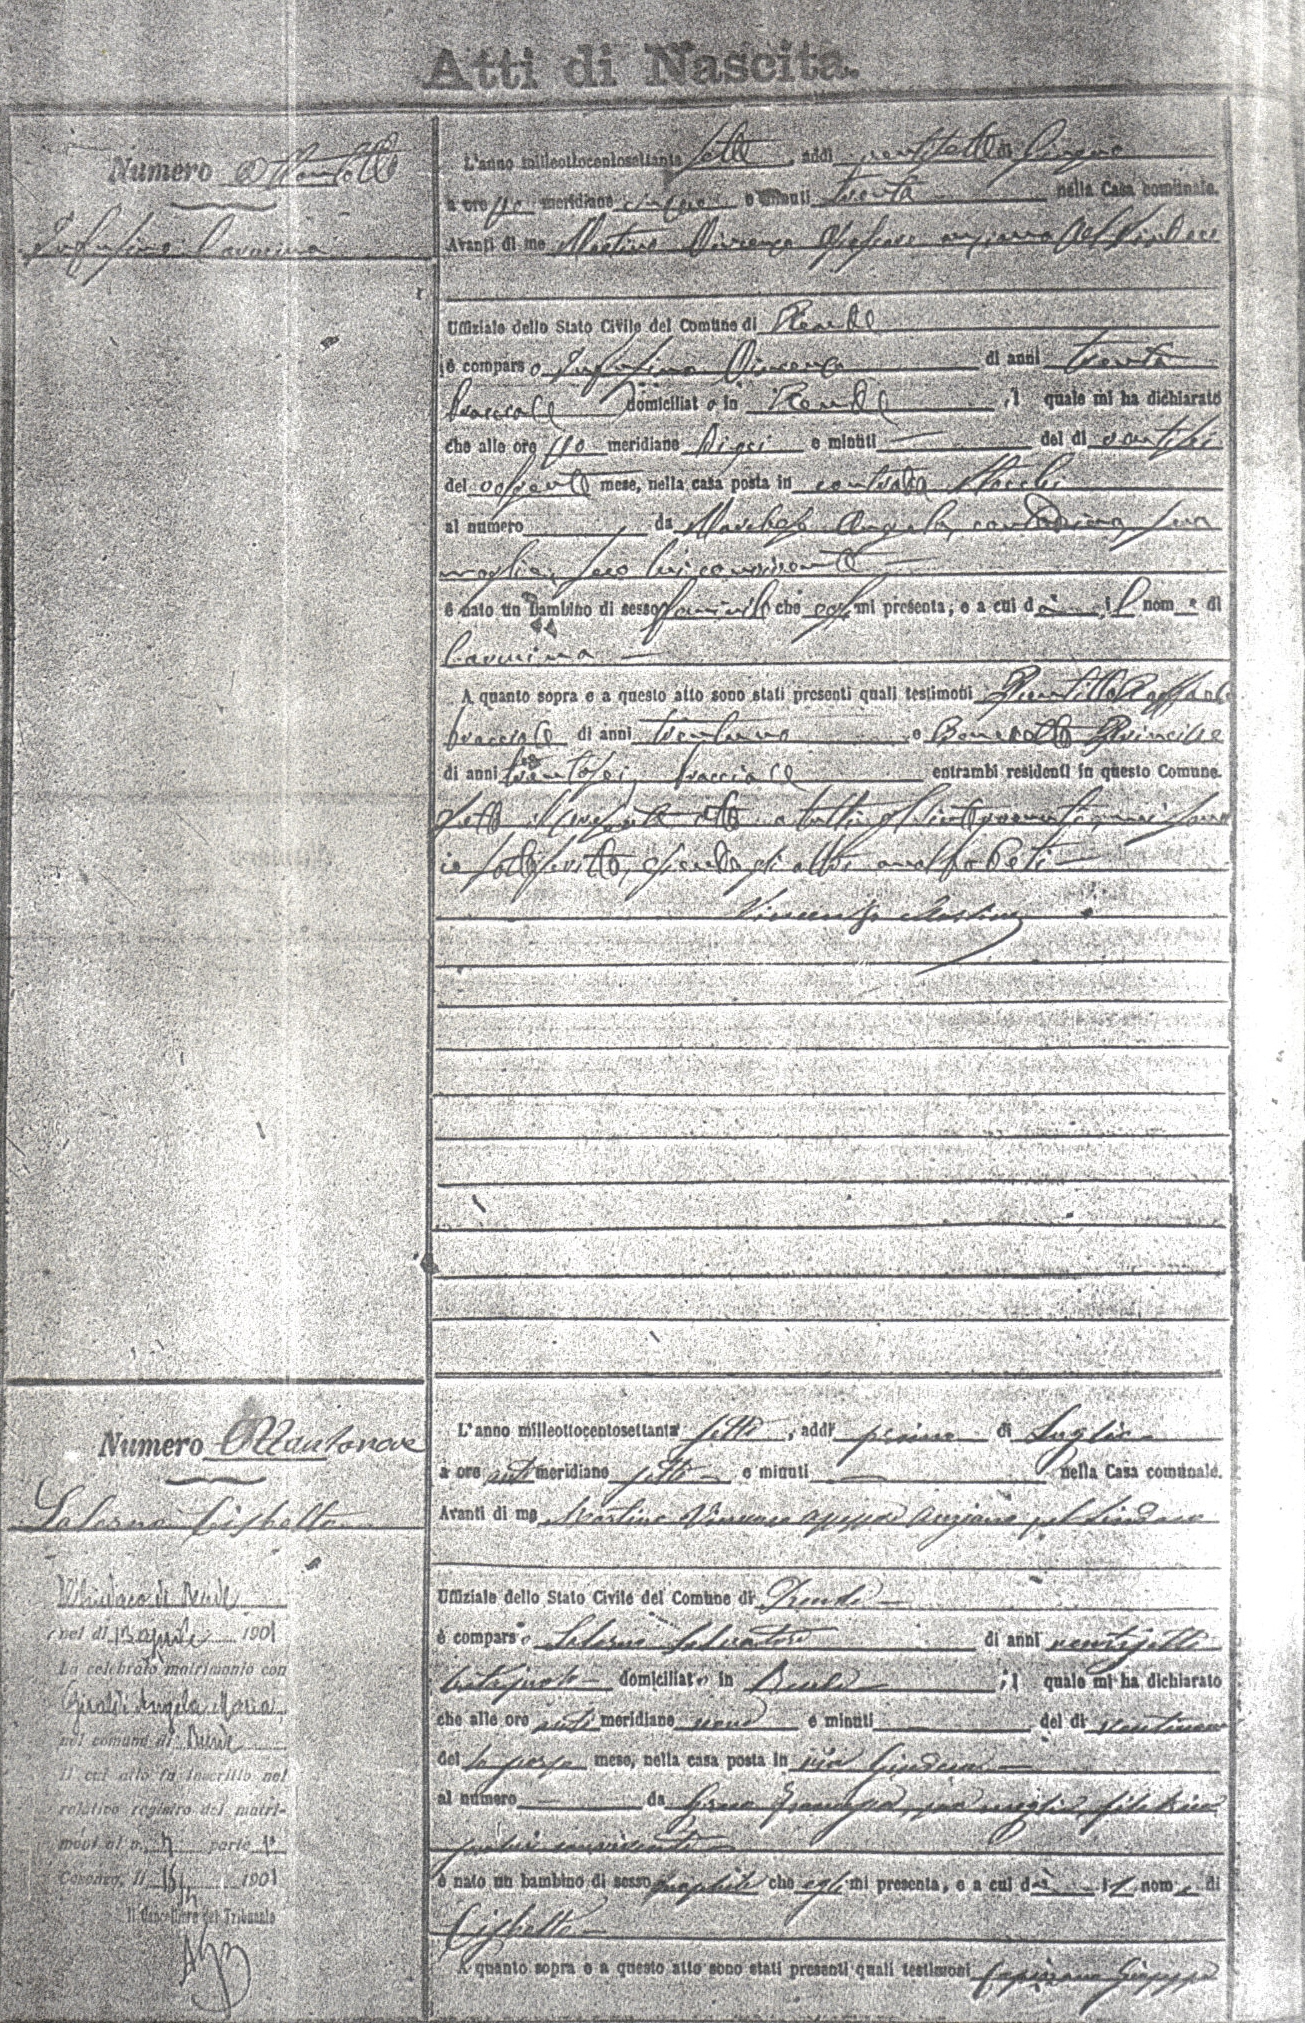 Atti di Nascita.
Numero Ottantotto
Infusino Carmina
L'anno milleottocentosettanta sette, addì ventisette di Giugno
a ore po meridiane cinque e minuti trenta nella Casa comunale.
Avanti di me Martino Vincenzo Assessore anziano pel Sindaco
Uffiziale dello Stato Civile del Comune di Rende
è comparso Infusino Vincenzo di anni trenta
bracciale domiciliato in Rende, il quale mi ha dichiarato
che alle ore po meridiane dieci e minuti del dì ventisei
del corrente mese, nella casa posta in contrada
al numero da Marchese Angela, contadina, sua
moglie, seco lui convivente
è nato un bambino di sesso feminile che egli mi presenta, e a cui dà il nome di
Carmina
A quanto sopra e a questo atto sono stati presenti quali testimoni Raffaele
bracciale di anni trentuno e Benedetto
di anni trentasei, bracciale entrambi residenti in questo Comune.
Letto il presente atto a tutti gl'intervenuti, mi sono
io sottoscritto, essendo gli altri analfabeti
Vincenzo Martino
Numero Ottantanove
Salerno Cisbetto
L'anno milleottocentosettanta sette, addì primo di Luglio
a ore anti meridiane sette e minuti nella Casa comunale.
Avanti di me Martino Vincenzo Assessore Anziano pel Sindaco
Uffiziale dello Stato Civile del Comune di Rende
è comparso Salerno Salvatore di anni ventisette
domiciliato in Rende, il quale mi ha dichiarato
che alle ore anti meridiane nove e minuti del dì ventinove
del lo perso mese, nella casa posta in via Giudeca
al numero da sua moglie, filatrice
seco lui convivente
è nato un bambino di sesso maschile che egli mi presenta, e a cui dà il nome di
Cisbetto
A quanto sopra e a questo atto sono stati presenti quali testimoni Capizzano Giuseppe
Il Sindaco di Rende
nel dì 13 aprile 1901
ha celebrato matrimonio con
Giraldi Angela Maria
nel comune di Rende
il cui atto fu inscritto nel
relativo registro dei matri-
moni al n. 7 parte 1ª
Cosenza, li 1901
Il Cancelliere del Tribunale